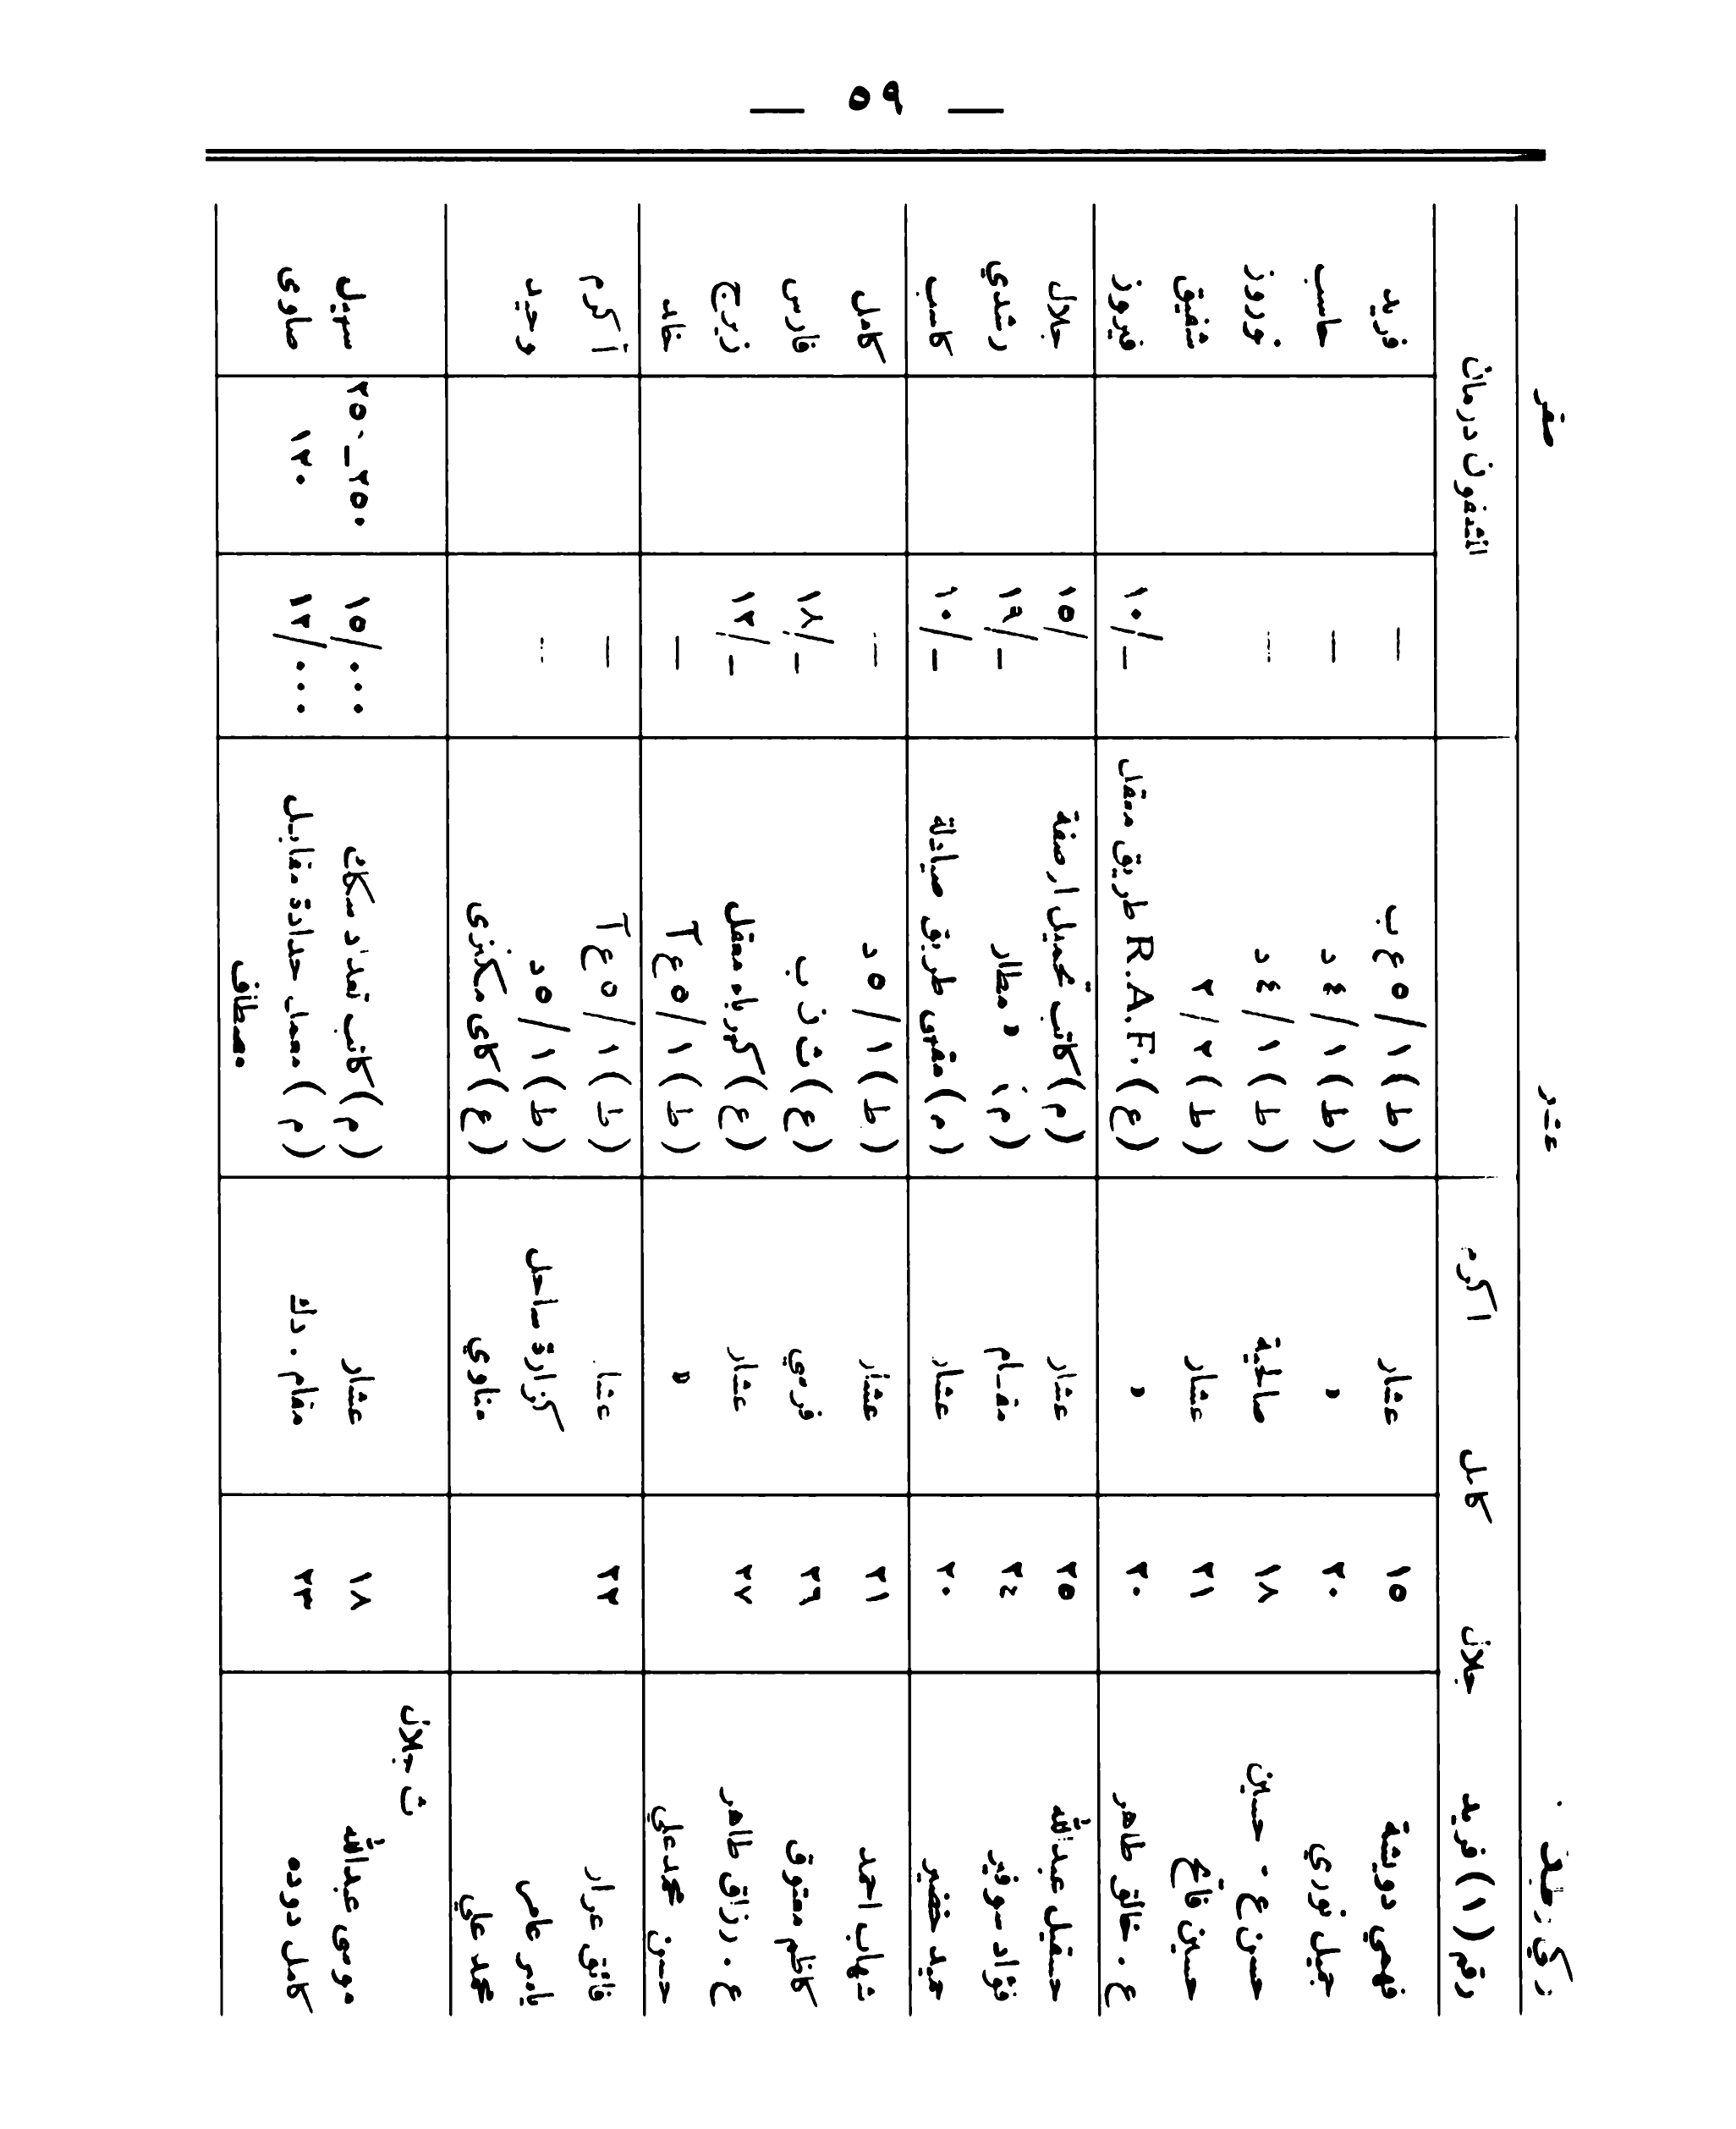 — ٥٩ —
عشر صفر
رقم (١) فريد جلال كامل اكرم الشفون درمان
فهمي دويشة ١٥ عشار (ط) ١/٥ ع ب — فريد
جميل نوري ٢٠ » (ط) ١/٤ د — حاسب
حسن ع . حسين ١٨ صالحية (ط) ١/٤ د — نوروز
حسين فاتح ٢١ عشار (ط) ٢/٢ شفيق
ع . خالق طاهر ٢٠ » (ع) R.A.F. طريق معقل ١٠/— فيروز
حسقيل عبدالله ٢٥ عشار (م) كاتب تحميل ارصفة ١٥/ جلال
فؤاد سوفير ٢٤ مقام (م) » مطار ١٦/— رشدي
حميد خضير ٢٠ عشار (م) مقهى طريق صيادلة ١٠/— كاسب
شهاب احمد ٢١ عشار (ط) ١/٥ د — كامل
كاظم معتوق ٢٦ (ع) ث ن ب ١٨/— فارس
ع . رزاق طاهر ٢٧ عشار (ع) كهرباء معقل ١٢/—
حسن محمد علي » (ط) ١/٥ ع آ — خالد
فائق عرار ٢٢ عشار (ط) ١/٥ ع آ — آكرم
ياسر عاصي كزارة ساحل (ط) ١/٥ د — وحيد
محمد علي مناوي (ع) كاي مكنزي
ث جلال
موسى عبدالله ١٨ عشار (م) كاتب تعداد سكك ١٥/٠٠٠ ٢٥٠—٢٥٠ سهيل
كامل دوده ٢٣ مقام . دك (م) معمل حدادة مقابل ١٢/٠٠٠ ١٢٠ صاوى